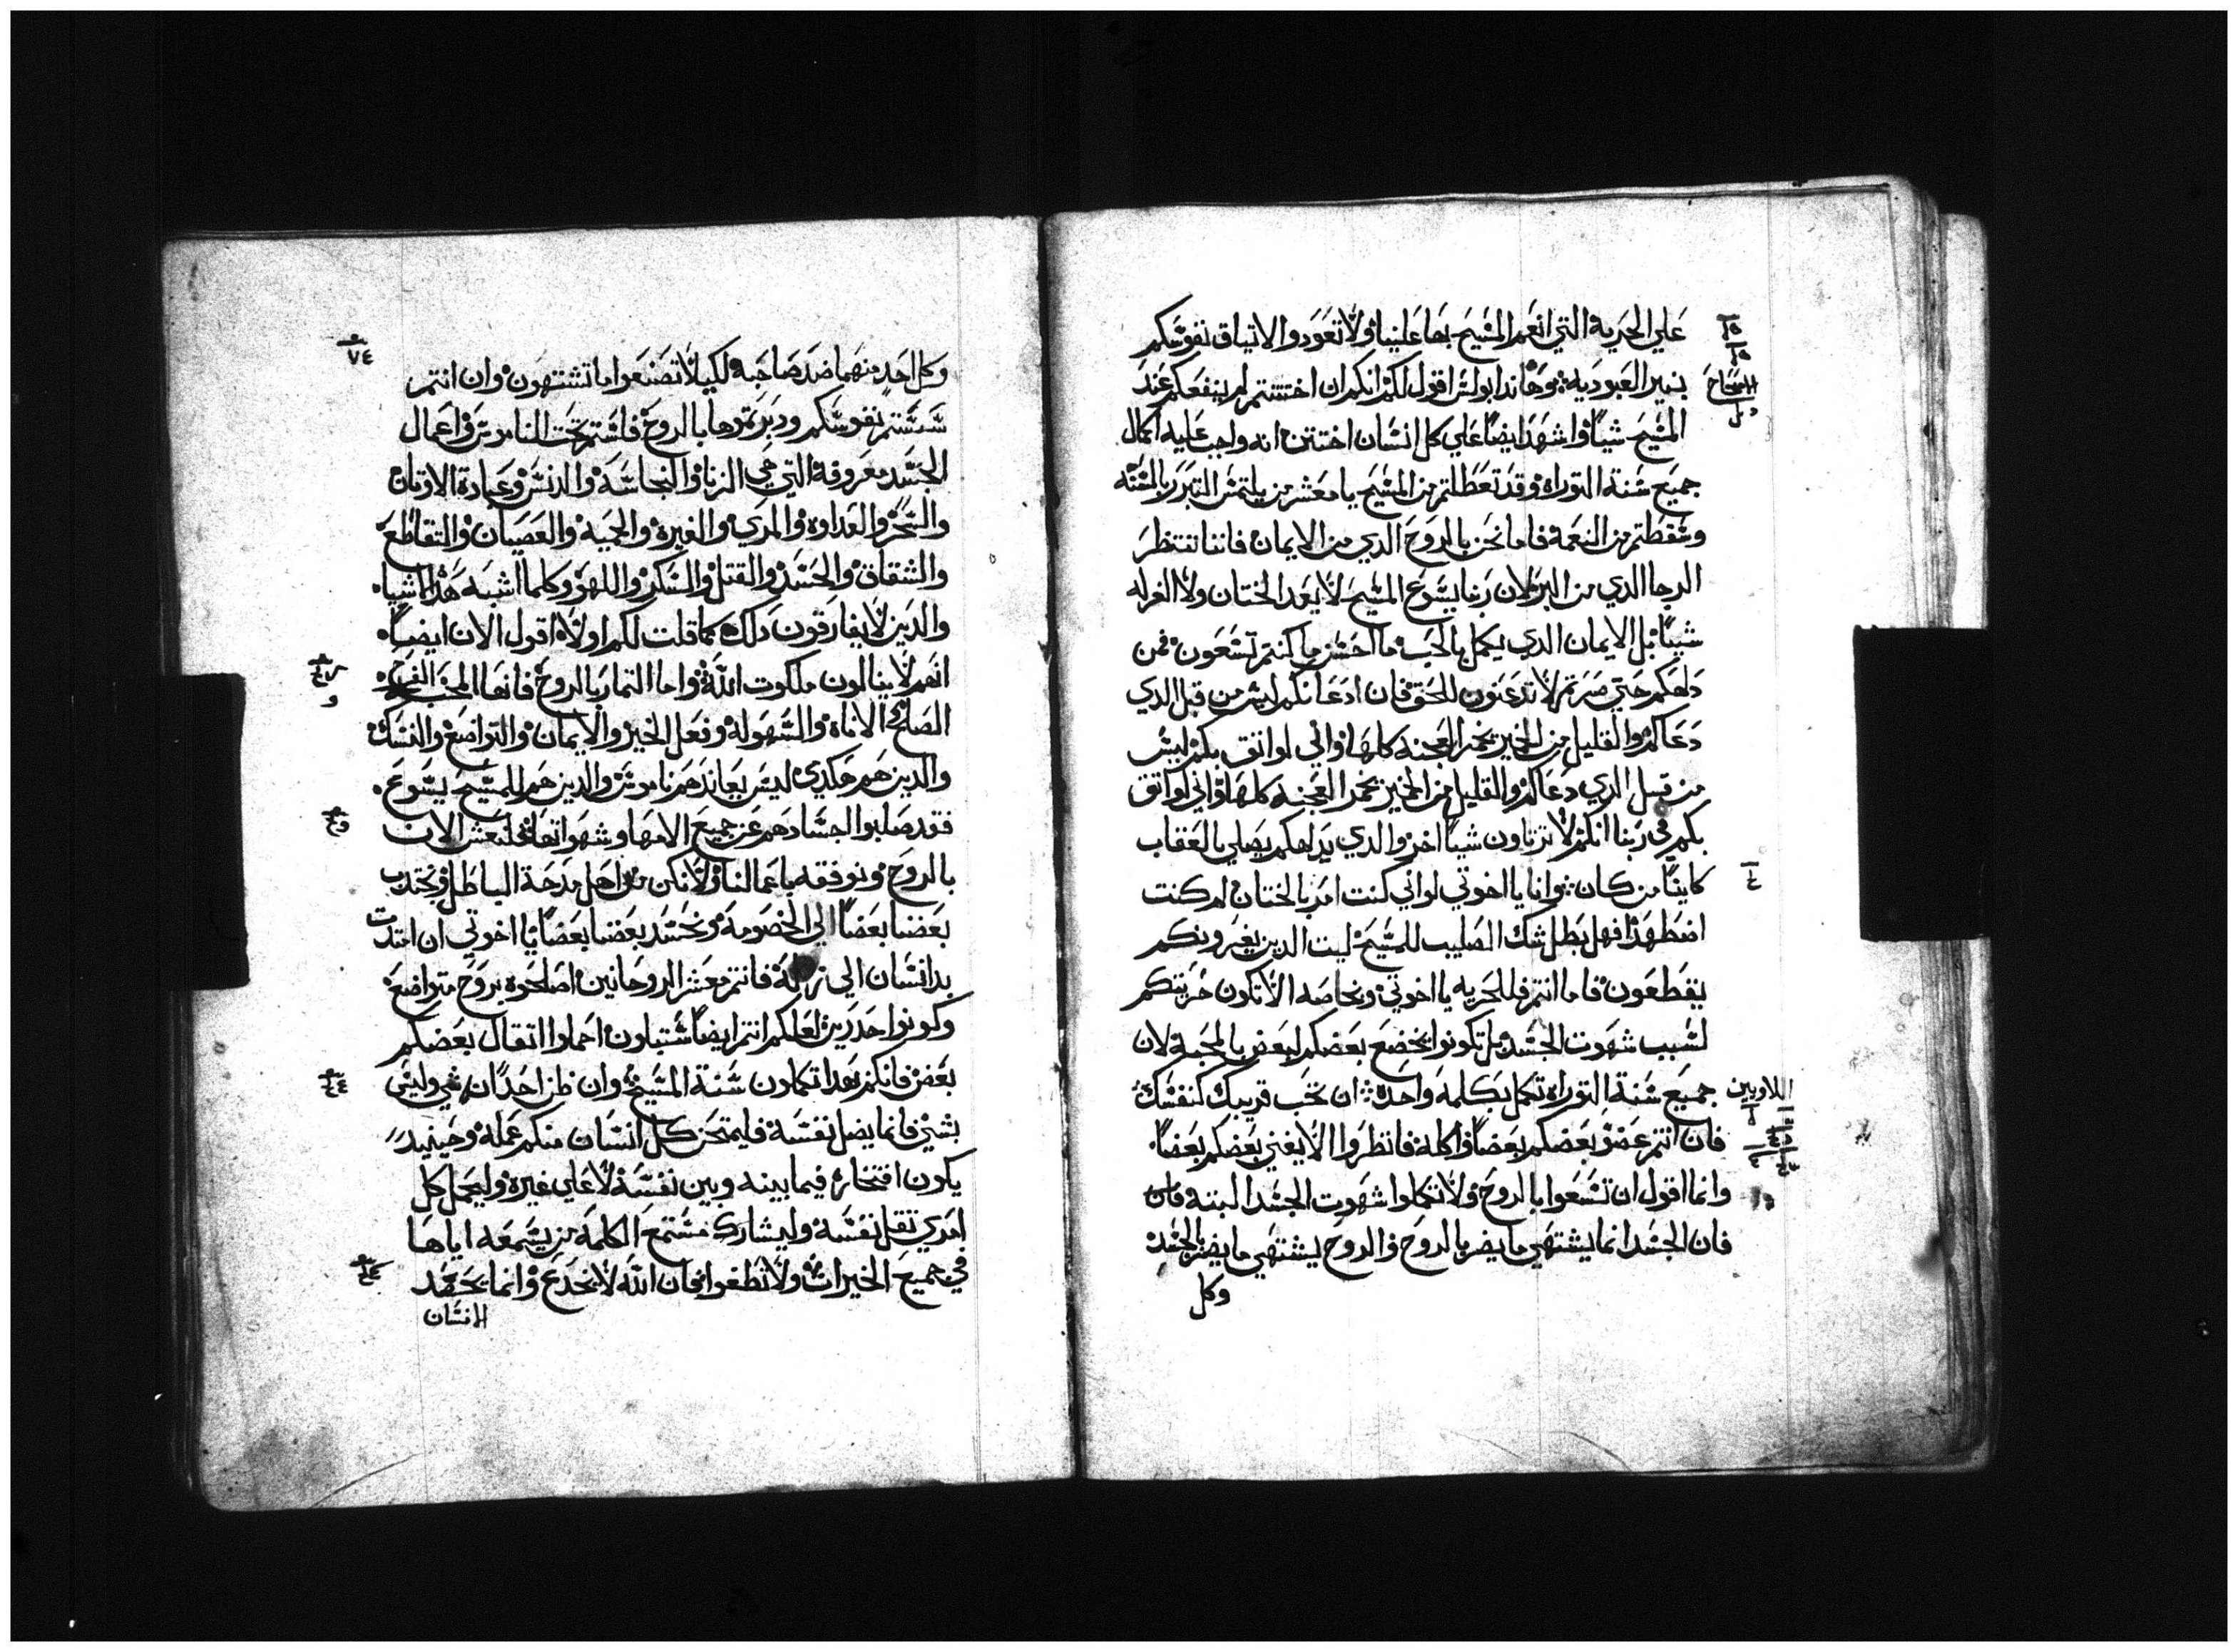 علي الحرية التي انعم المسيح بها علينا ولا تعودوا الاتياق نفوسكم
بنير العبودية هوهاندا بولس اقول لكم انكم ان اختتنتم لم ينفعكم عند
الاصحاح
المسيح شياً واشهد ايضاً علي كل انسان اختتن انه واجب عليه اكمال
جميع سنة التوراه وقد تعطلتم من المسيح يا معشر من يلتمس التبرر بالسنه
وسقطتم من النعمة فاما نحن بالروح الدي من الايمان فاننا ننتظر
الرجا الدي من البر لان ربنا يسوع المسيح لا يعد الختان ولا الغرله
شيياً بل الايمان الدي يكمل بالحب ما احسن ما كنتم تسعون فمن
دلهكم حتي صرتم لا تدعنون للحق فان ادعانكم ليس من قبل الدي
دعاكم والقليل من الخير يخمر العجنه كلها واني لواتق بكم ليس
من قبل الدي دعاكم والقليل من الخير يخمر العجنه كلها واني لواتق
بكم في ربنا انكم لا ترتاون شياً اخر والدي يدلهكم يصلي بالعقاب
كايناً من كان وانا يا اخوتي لواني كنت امر بالختان لم كنت
اضطهد افهل بطل شك الصليب للمسيح ليت الدين يغيرونكم
يقطعون فاما انتم فللحريه يا اخوتي وبخاصه الا تكون حريتكم
لسبب شهوت الجسد بل تكونوا يخضع بعضكم لبعض بالمحبة لان
اللاويين
جميع سنة التوراه تكمل بكلمه واحده ان تحب قريبك كنفسك
فان انتم عض بعضكم بعضاً واكله فانظروا الا يفني بعضكم بعضاً
وانما اقول ان تسعوا بالروح ولا تكملوا شهوت الجسد البته فان
فان الجسد انما يشتهي ما يضر بالروح والروح يشتهي ما يضر بالجسد
وكل
وكل احد منهما ضد صاحبه لكيلا تصنعوا ما تشتهون وان انتم
سستم نفوسكم ودبرتموها بالروح فلستم تحت الناموس واعمال
الجسد معروفة التي هي الزنا والنجاسة والدنس وعبادة الاوتان
والسحر والعداوه والمري والغيره والحميه والعصيان والتقاطع
والشقاق والحسد والقتل والسكر واللهو وكلما اشبه هده الاشيا
والدين لا يفارقون دلك كما قلت لكم اولا اقول الان ايضاً
انهم لا ينالون ملكوت الله واما اتمار بالروح فانها المحبة الفرح
الصلح الاناه والسهوله وفعل الخير والايمان والتواضع والنسك
والدين هم هكدي ليس يعاندهم ناموس والدين هم للمسيح يسوع
فقد صلبوا اجسادهم عن جميع الامها وشهواتها فلنعش الان
بالروح ونوفقه باعمالنا ولا نكن من اهل مدحة الباطل ونجتدب
بعضنا بعضاً الي الخصومه ونحسد بعضنا بعضاً يا اخوتي ان
بد انسان الي زله فانتم معشر الروحانين اصلحوه بروح متواضعه
وكونوا حدرين لعلكم انتم ايضاً ستبلون احملوا اتقال بعضكم
بعض فانكم بهدا تكملون سنة المسيح وان ظن احداً انه شي وليس
بشي فانما يضل نفسه فليمتحن كل انسان منكم عمله وحينيد
يكون افتخاره فيما بينه وبين نفسه لا علي غيره وليحمل كل
امري تقل نفسه وليشارك مستمع الكلمه من يسمعه اياها
في جميع الخيرات ولا تطغوا فان الله لا يخدع وانما يحصد
الانسان